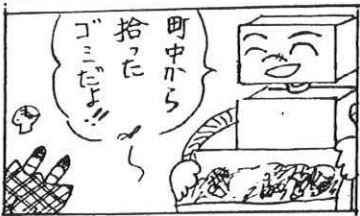 町中から
拾った
ゴミだよ!!